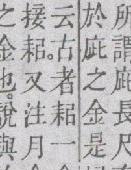 所謂庛長尺
於庛之金是
云古者耜一
接耜。又注月
之金也。說與